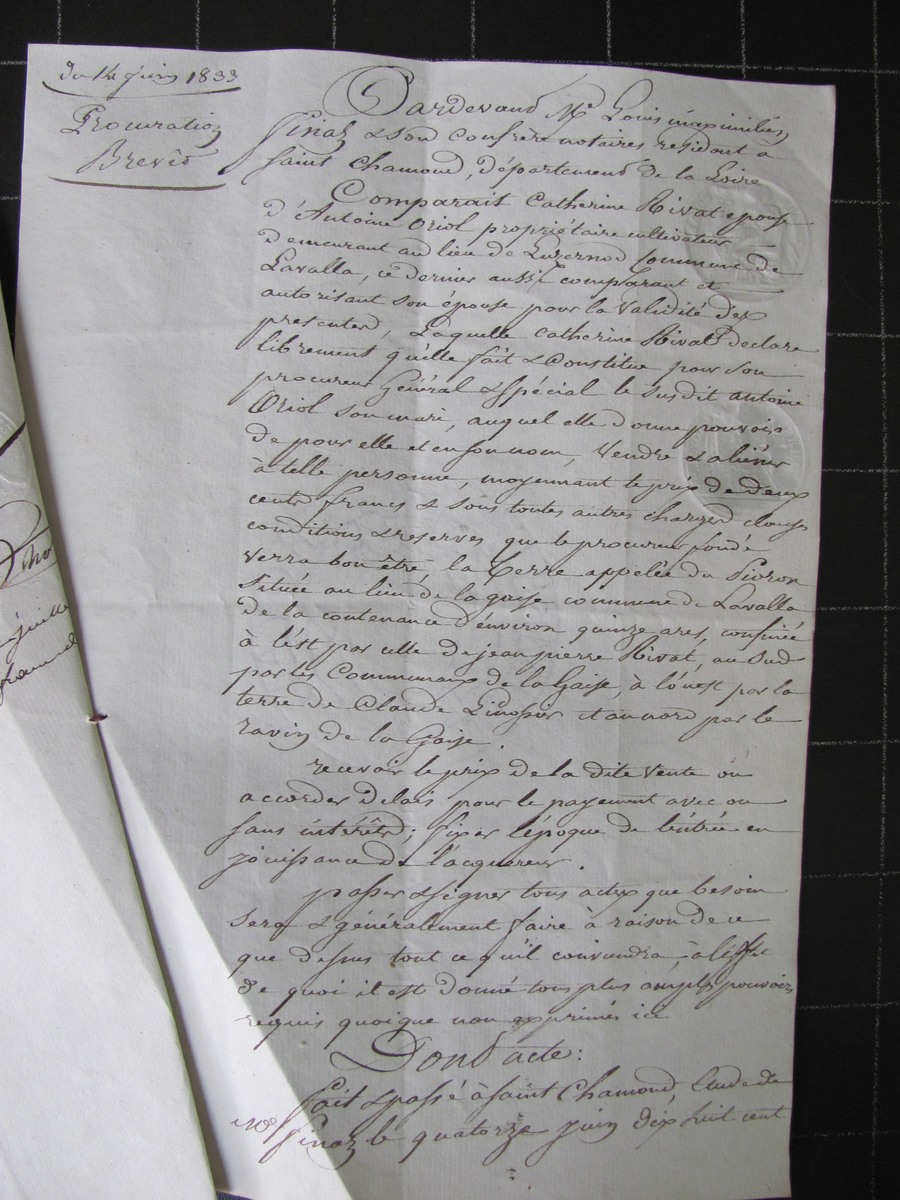 du 14 juin 1833
Procuration
Brevet
Pardevant Me Louis maximilien
finaz & son confrère notaires residant à
saint Chamond, Département de la Loire
Comparait Catherine Rivat epouse
d'Antoine Oriol propriétaire cultivateur
demeurant au lieu de Luzernod Commune de
Lavalla, ce dernier aussi comparant et
autorisant son épouse pour la validité des
presentes, Laquelle Catherine Rivat declare
librement qu'elle fait & Constitue pour son
procureur Général & spécial le susdit antoine
Oriol son mari, auquel elle donne pouvoir
de pour elle et en son nom, Vendre & aliéner
à telle personne, moyennant le prix de deux
cents francs & sous toutes autres charges clauses
conditions & reserves que le procureur fondé
verra bon être la Terre appelée du Pivron
située au lieu de la gaise commune de Lavalla
de la contenance d'environ quinze ares, confinée
à l'est par celle de jean pierre Rivat, au sud
par les Communaux de la Gaise, à l'ouest par la
terre de Claude Linossier et au nord par le
ravin de la Gaise.
recevoir le prix de la dite Vente ou
accorder Delais pour le payement avec ou
sans intérêts; fixer l'époque de l'entrée en
jouissance de l'acquereur.
passer & signer tous actes que besoin
sera & généralement faire à raison de ce
que dessus tout ce qu'il conviendra, à l'effet
de quoi il est donné tous plus amples pouvoirs
requis quoique non exprimés ici
Dont acte:
fait & passé à saint Chamond, Etude de
me finaz le quatorze juin dix huit cent